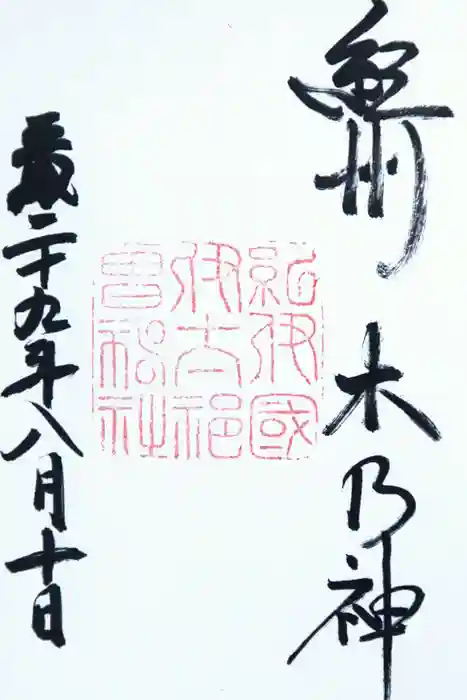 州 木乃神
紀伊國
伊太祁
曽神社
二十九年八月十日